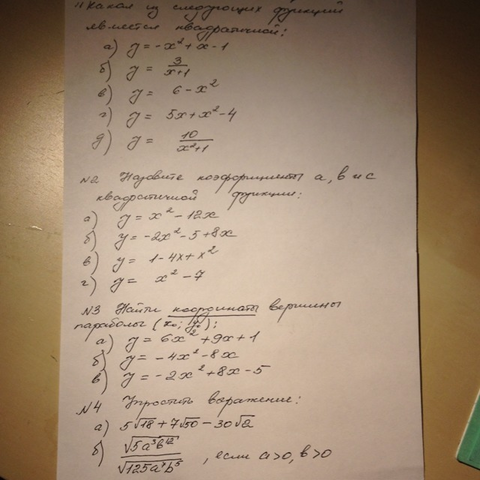 Какая из следующих функций
является квадратичной:
а) y = -x² + x - 1
б) y = 3/(x+1)
в) y = 6 - x²
г) y = 5x + x² - 4
д) y = 10/(x²+1)
№2 Назовите коэффициенты a, b и c
квадратичной функции:
а) y = x² - 12x
б) y = -2x² - 5 + 8x
в) y = 1 - 4x + x²
г) y = x² - 7
№3 Найти координаты вершины
параболы (x₀; y₀):
а) y = 6x² + 9x + 1
б) y = -4x² - 8x
в) y = -2x² + 8x - 5
№4 Упростить выражение:
а) 5√18 + 7√50 - 30√2
б) √(5a³b¹²)/√(125a³b⁵), если a>0, b>0